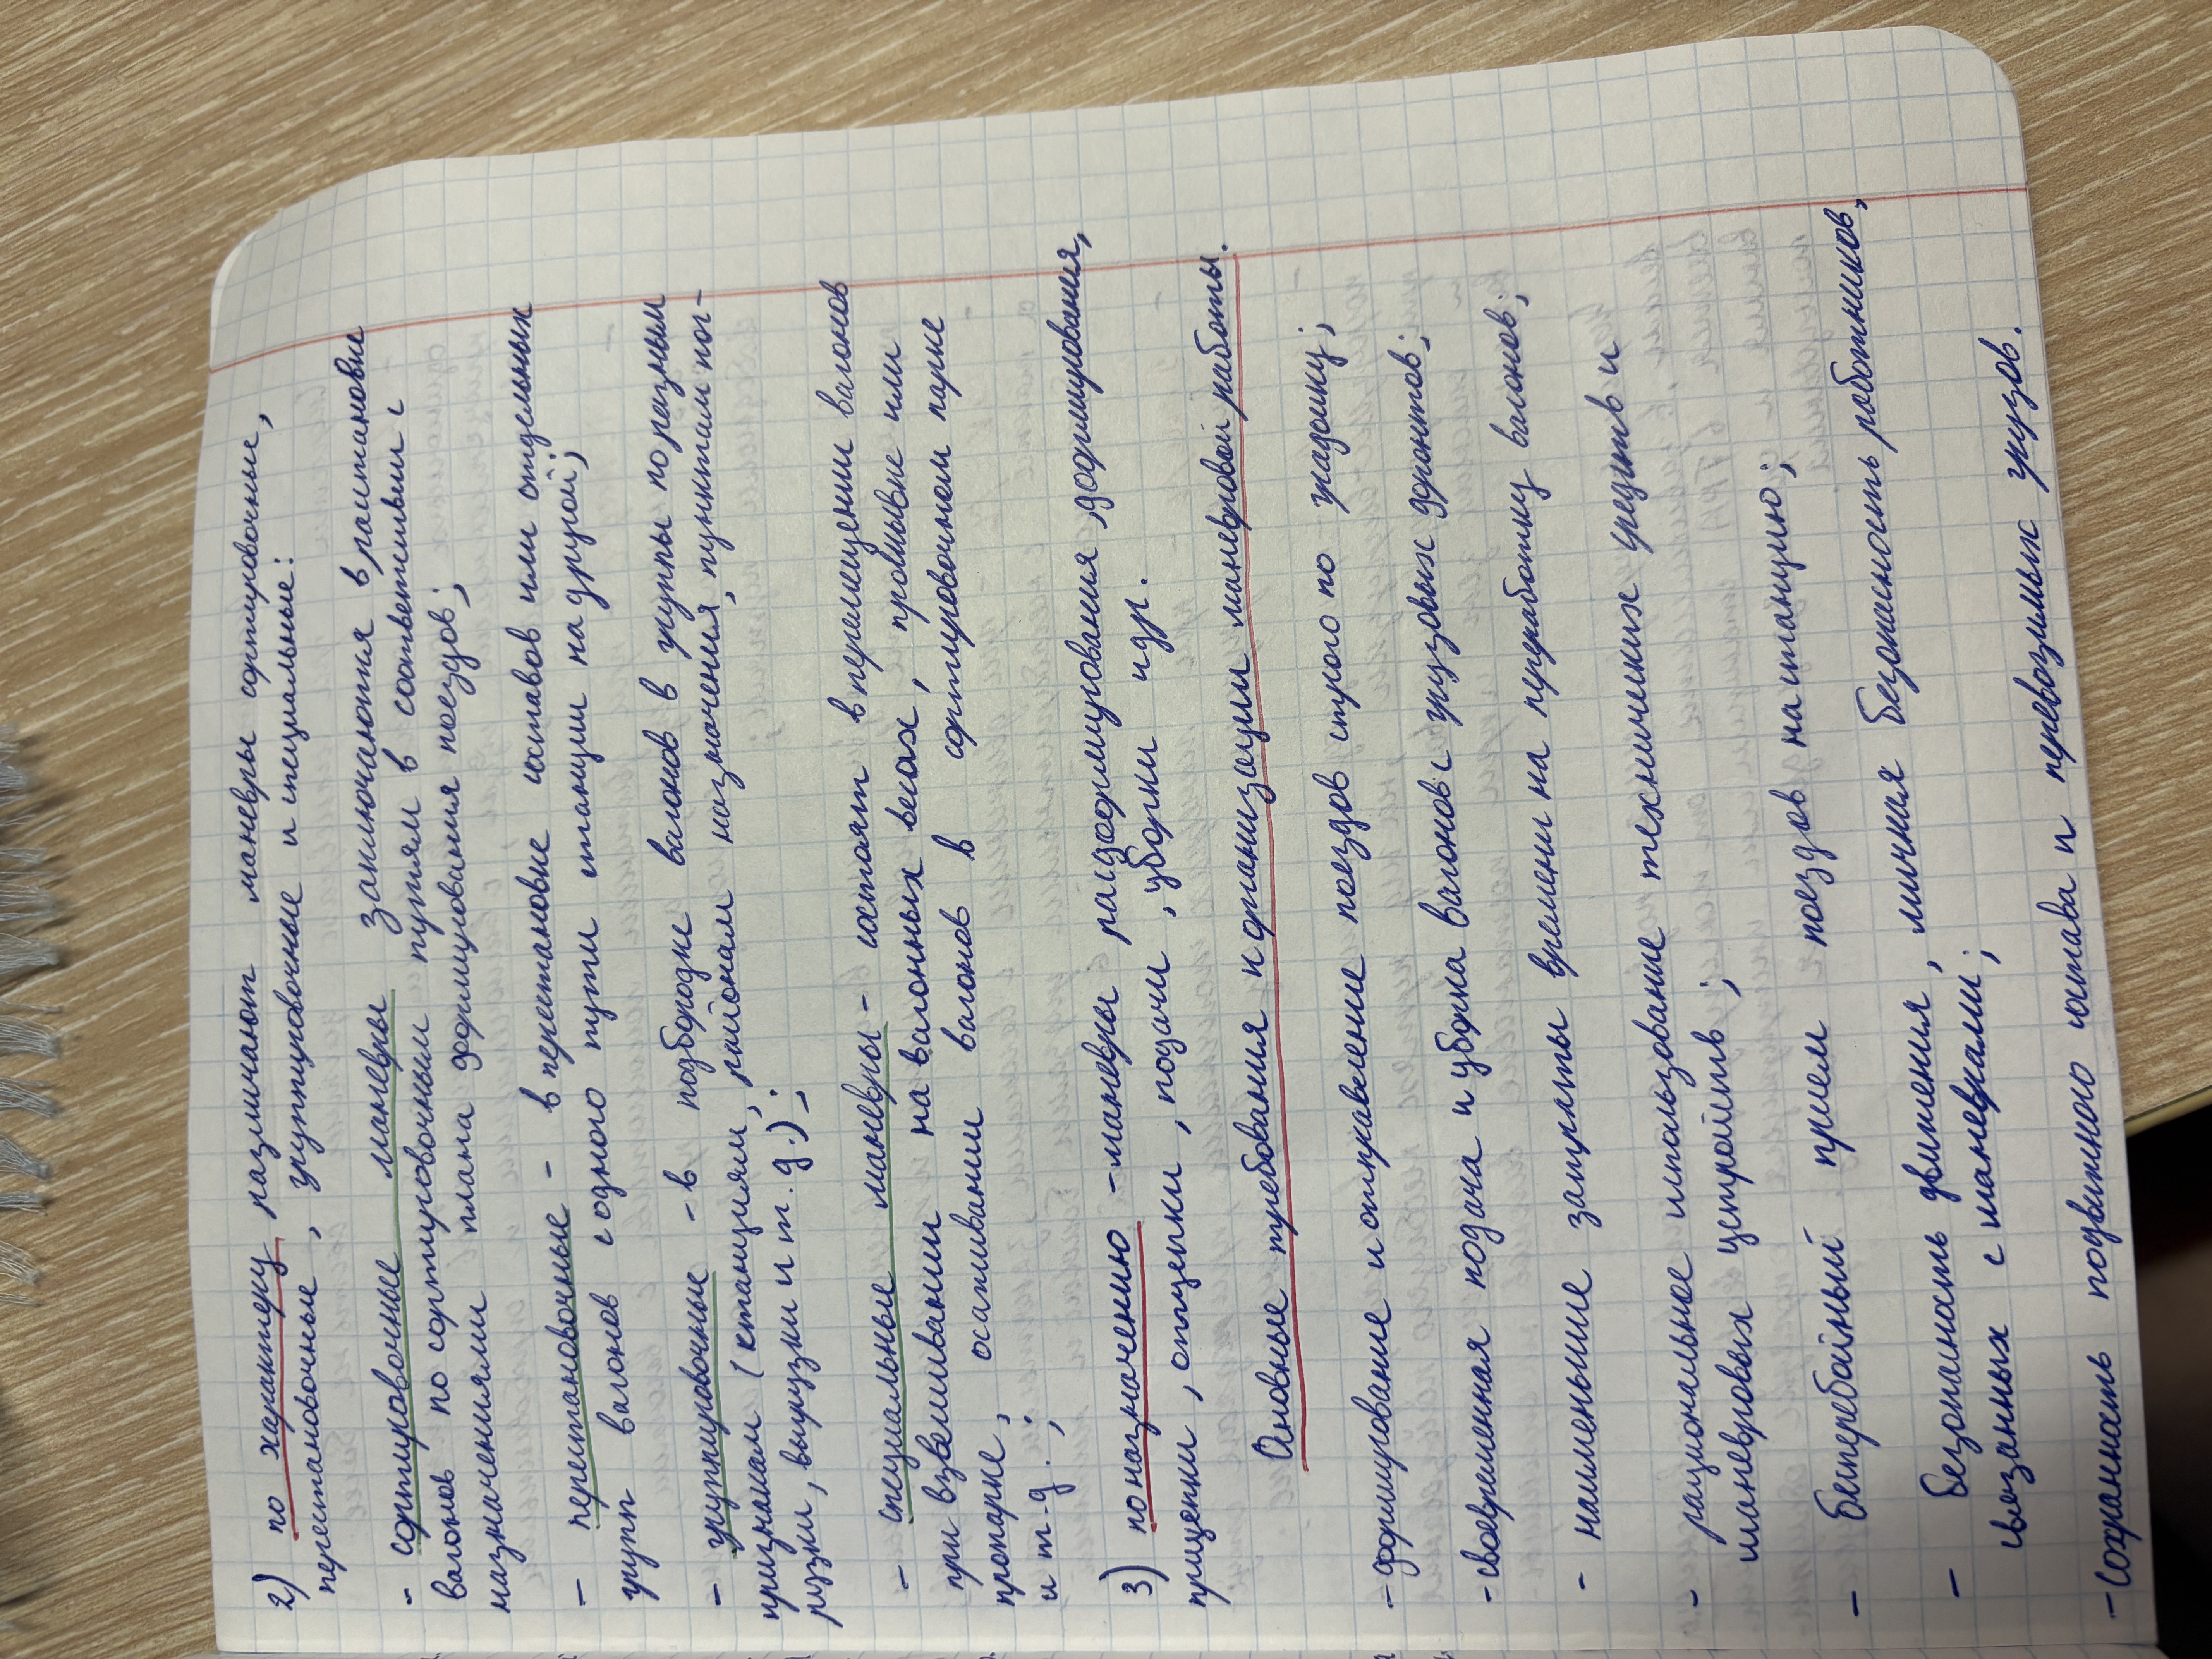 2) по характеру различают маневры сортировочные,
перестановочные, группировочные и специальные:
- сортировочные маневры заключаются в расстановке
вагонов по сортировочным путям в соответствии с
назначениями плана формирования поездов;
- перестановочные - в перестановке составов или отдельных
групп вагонов с одного пути станции на другой;
- группировочные - в подборке вагонов в группы по разным
признакам (станциям, районам назначения, пунктам пог-
рузки, выгрузки и т.д.);
- специальные маневры - состоят в перемещении вагонов
при взвешивании на вагонных весах, промывке или
пропарке, осаживании вагонов в сортировочном парке
и т.д.;
3) по назначению - маневры расформирования, формирования,
прицепки, отцепки, подачи, уборки и др.
Основные требования к организации маневровой работы.
- формирование и отправление поездов строго по графику;
- своевременная подача и уборка вагонов с грузовых фронтов;
- наименьшие затраты времени на переработку вагонов;
- рациональное использование технических средств и
маневровых устройств;
- бесперебойный прием поездов на станцию;
- безопасность движения, личная безопасность работников,
связанных с маневрами;
- сохранность подвижного состава и перевозимых грузов.